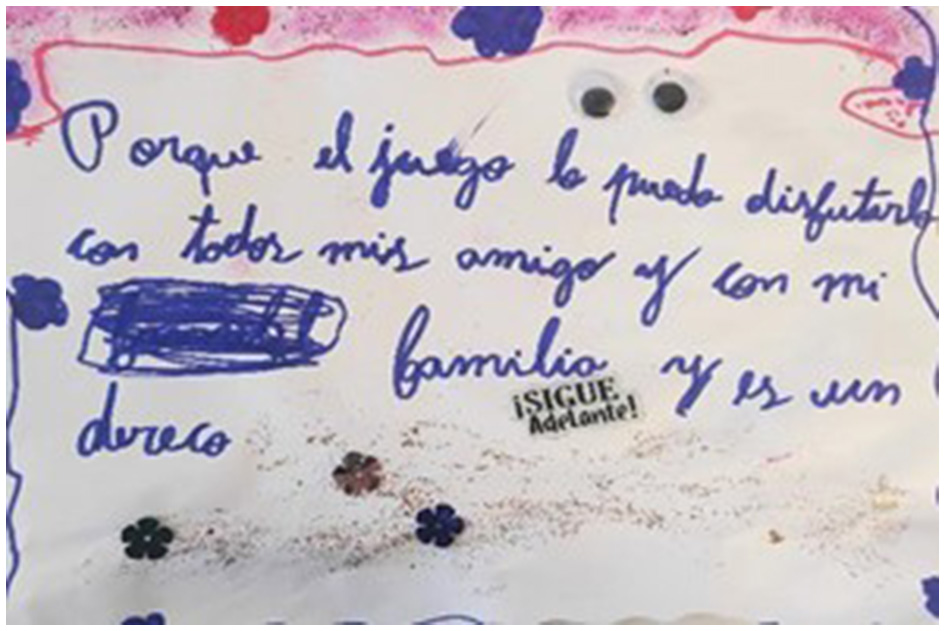 Porque el juego lo puedo disfutarlo
con todos mis amigo y con mi
familia y es un
¡SIGUE
Adelante!
dereco